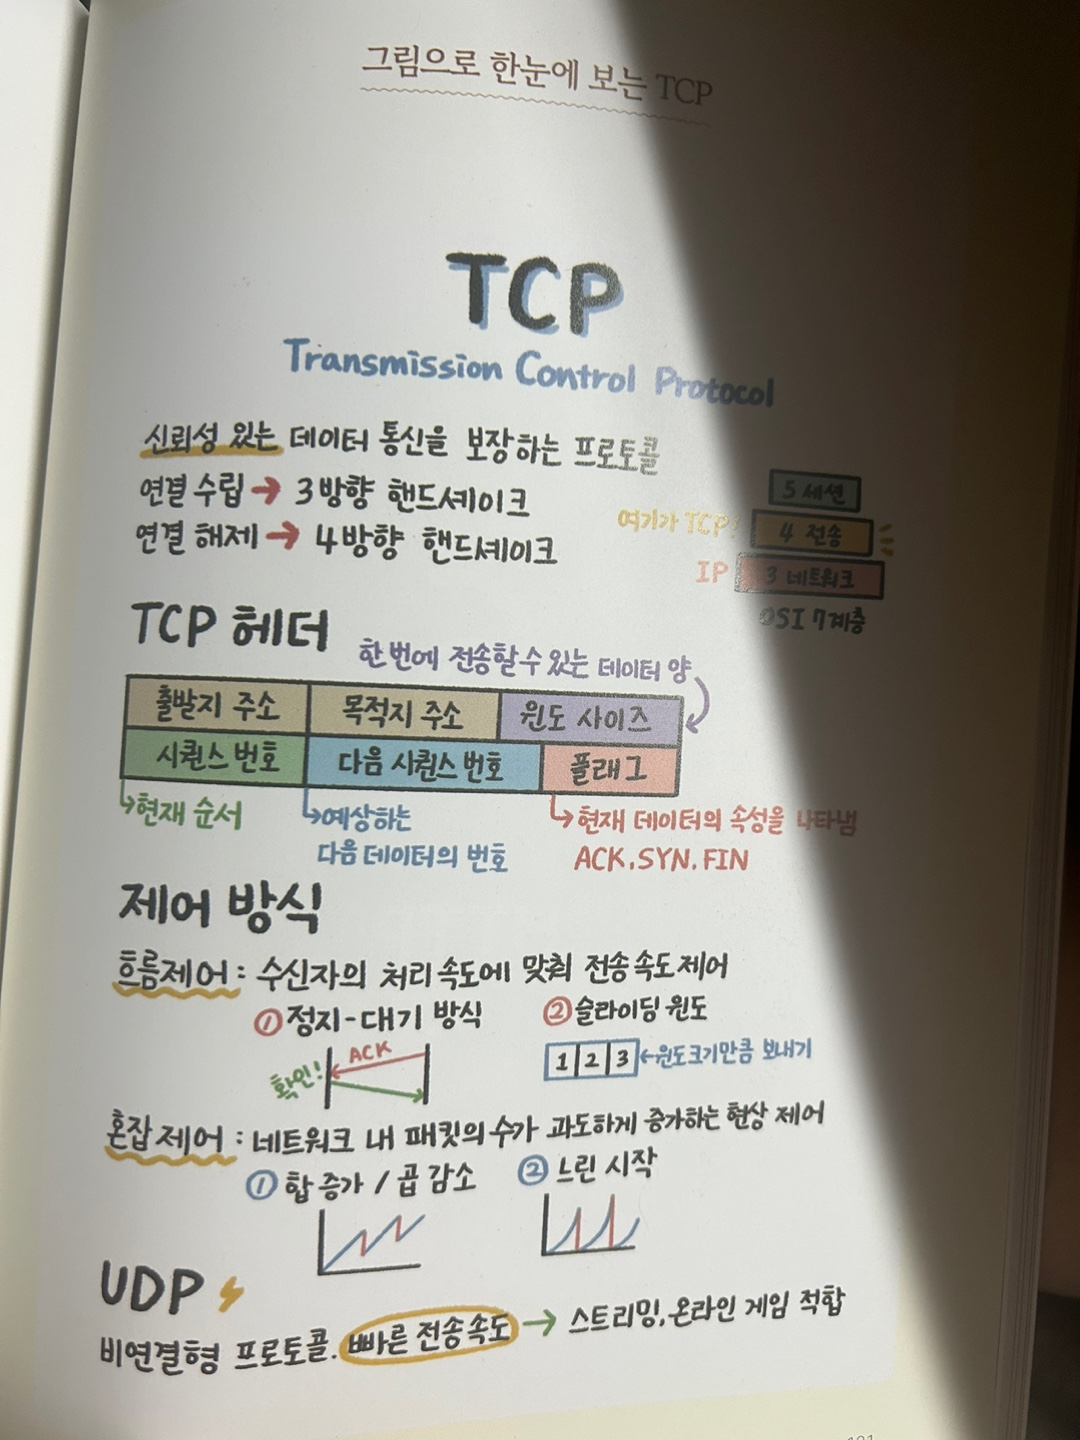 그림으로 한눈에 보는 TCP
TCP
Transmission Control Protocol
신뢰성 있는 데이터 통신을 보장하는 프로토콜
연결 수립 → 3방향 핸드셰이크
연결 해제 → 4방향 핸드셰이크
5 세션
여기가 TCP!
4 전송
IP
3 네트워크
OSI 7계층
TCP 헤더
한 번에 전송할 수 있는 데이터 양
출발지 주소
목적지 주소
윈도 사이즈
시퀀스 번호
다음 시퀀스 번호
플래그
→현재 순서
→예상하는
다음 데이터의 번호
→현재 데이터의 속성을 나타냄
ACK.SYN.FIN
제어 방식
흐름제어 : 수신자의 처리 속도에 맞춰 전송속도 제어
① 정지-대기 방식
② 슬라이딩 윈도
ACK
확인!
1 2 3
←윈도크기만큼 보내기
혼잡 제어 : 네트워크 내 패킷의 수가 과도하게 증가하는 현상 제어
① 합 증가 / 곱 감소
② 느린 시작
UDP
비연결형 프로토콜. 빠른 전송속도 → 스트리밍, 온라인 게임 적합